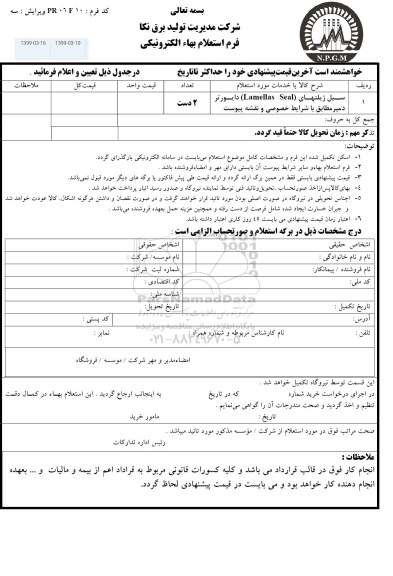 بسمه تعالی
کد فرم : PR ۰۶ F ۱۰ ویرایش : سه
شرکت مدیریت تولید برق نکا
فرم استعلام بهاء الکترونیکی
1399-03-10
1399-03-16
N.P.G.M
خواهشمند است آخرین قیمت پیشنهادی خود را حداکثر تا تاریخ درجدول ذیل تعیین و اعلام فرمائید .
ردیف شرح کالا یا خدمات مورد استعلام تعداد قیمت واحد قیمت کل ملاحظات
۱ سیل ژیلنهای (Lamellas Seal) دایسورتر ۲ دست
دمپرمطابق با شرایط خصوصی و نقشه پیوست
جمع کل به حروف:
تذکر مهم : زمان تحویل کالا حتماً قید گردد.
توضیحات:
۱- اسکن تکمیل شده این فرم و مشخصات کامل موضوع استعلام می‌بایست در سامانه الکترونیکی بارگذاری گردد.
۲- فرم استعلام بهاءو سایر شرایط پیوست آن بایستی دارای مهر و امضاءفروشنده باشد.
۳- قیمت پیشنهادی بایستی فقط در همین برگه ارائه گردد و ارائه قیمت طی پیش فاکتور یا برگه های دیگر مورد قبول نمی‌باشد.
۴- بهای‌کالاپس‌ازاخذ صورتحساب ،تحویل‌وتائید فنی توسط نماینده نیروگاه و صدور رسید انبار پرداخت خواهد شد .
۵- اجناس تحویلی در نیروگاه در صورت اصلی بودن مورد تائید قرار خواهند گرفت و در صورت نقصان و داشتن هرگونه اشکال، کالا عودت خواهد شد
و جبران خسارت ایجاد شده شامل فرصت از دست رفته و همچنین هزینه حمل بعهده فروشنده می‌باشد .
۶- اعتبار زمان قیمت پیشنهادی می بایست ۴۵ روز کاری اعتبار داشته باشد.
درج مشخصات ذیل در برگه استعلام و صورتحساب الزامی است :
اشخاص حقیقی اشخاص حقوقی
نام و نام خانوادگی : نام موسسه/ شرکت :
نام فروشنده / پیمانکار: شماره ثبت شرکت :
کد ملی: کد اقتصادی :
شناسه ملی:
تاریخ تکمیل : تاریخ تحویل:
آدرس: کد پستی :
تلفن : نام کارشناس مربوطه و شماره همراه : نمابر :
ParsNamadData
۰۲۱-۸۸۳۴۹۶۷۰-۵
امضاءمدیر و مهر شرکت / موسسه / فروشگاه
این قسمت توسط نیروگاه تکمیل خواهد شد .
در اجرای درخواست خرید شماره که در تاریخ به اینجانب ارجاع گردید . این استعلام بهاء در کمال دقت
تنظیم و اخذ گردید و صحت مندرجات آن را گواهی می‌نمایم.
تاریخ : مامور خرید
صحت مراتب فوق در مورد استعلام از شرکت / مؤسسه مذکور مورد تائید میباشد .
رئیس اداره تدارکات
ملاحظات :
انجام کار فوق در قالب قرارداد می باشد و کلیه کسورات قانونی مربوط به قراداد اعم از بیمه و مالیات و ... بعهده
انجام دهنده کار خواهد بود و می بایست در قیمت پیشنهادی لحاظ گردد.